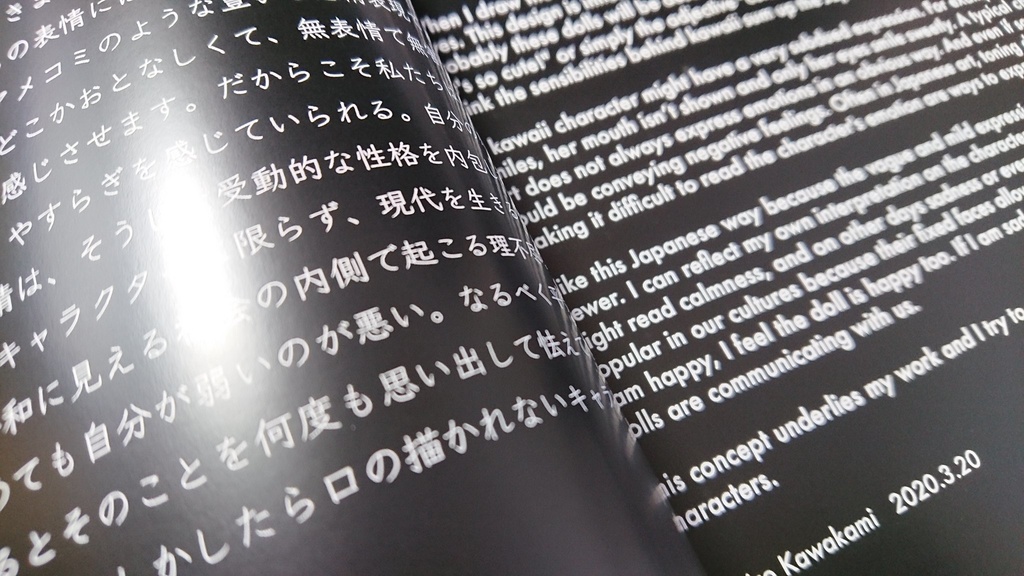 の表情に
アメコミのような豊
どこかおとなしくて、無表情で無
感じさせます。だからこそ私たち
やすらぎを感じていられる。自分
情は、そう 受動的な性格を内包
キャラクタ 限らず、現代を生き
和に見える の内側で起こる理不
っても自分が弱いのが悪い。なるべく
るとそのことを何度も思い出して怯え
しかしたら口の描かれないキャ
hen I draw
es. This design is
obably these dolls will be
s so cute!" or simply the adjective
nk the sensibilities behind kawaii sum up
kawaii character might have a very subdued expression. For
iles, her mouth isn't shown and only her eyes smile sweetly. A typical
t does not always express emotions in an obvious way. And even if
ould be conveying negative feelings. Often in Japanese art, toning
aking it difficult to read the character's emotion are ways to
like this Japanese way because the vague and mild
ewer. I can reflect my own interpretation on the character
ight read calmness, and on other days sadness or
opular in our cultures because their fixed faces allow
am happy, I feel the doll is happy too. If I am sad
olls are communicating with us.
his concept underlies my work and I try to
haracters.
Kawakami 2020.3.20